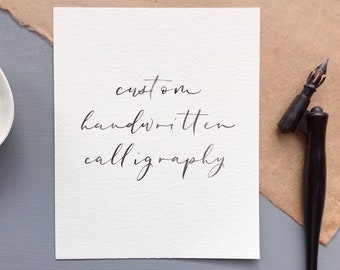 custom
handwritten
calligraphy